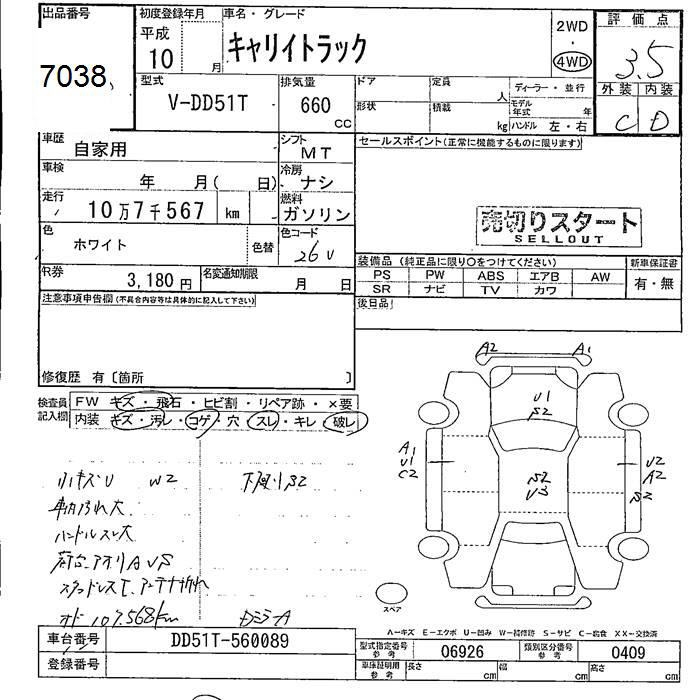 出品番号
7038
初度登録年月
平成
10 月
車名・グレード
キャリイトラック
2WD
・
4WD
評価点
3.5
外装 内装
C D
型式
V-DD51T
排気量
660
CC
ドア
定員
人
ディーラー・並行
形状
積載
kg
モデル年式 年
ハンドル 左・右
車歴
自家用
シフト
MT
セールスポイント(正常に機能するものに限ります)
車検
年 月( 日)
冷房
ナシ
走行
10万7千567 km
燃料
ガソリン
売切りスタート
SELLOUT
色
ホワイト
色替
色コード
26U
装備品(純正品に限り○をつけてください)
新車保証書
PS PW ABS エアB AW
有・無
SR ナビ TV カワ
R券
3,180円
名変通知期限
月 日
後日品
注意事項申告欄(不具合内容等は具体的に記入して下さい)
修復歴 有〔箇所 〕
検査員記入欄
FW キズ・飛石・ヒビ割・リペア跡・×要
内装 キズ・汚レ・コゲ・穴・スレ・キレ・破レ
小キズU W2
下廻りS2
車内汚れ大
ハンドルスレ大
荷台アオリAUS
オド107,568km
A2 A1
U1
S2
A1
U1
C2
S2
U3
U2
A2
S2
スペア
A−キズ E−エクボ U−凹み W−補修跡 S−サビ C−腐食 XX−交換済
車台番号
DD51T-560089
型式指定番号参考
06926
類別区分番号参考
0409
登録番号
車庫証明用参考
長さ cm
幅 cm
高さ cm